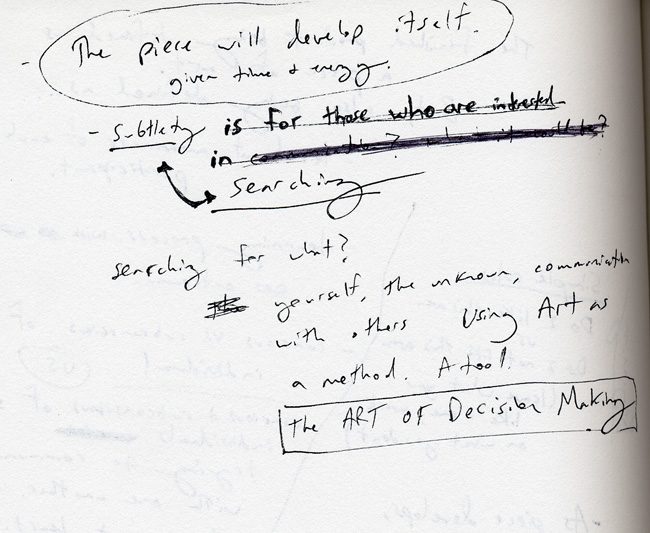 - The piece will develop itself.
given time & energy.
- Subtlety is for those who are interested
in
Searching
searching for what?
yourself, the unknown, communication
with others Using Art as
a method. A tool.
The ART OF Decision Making